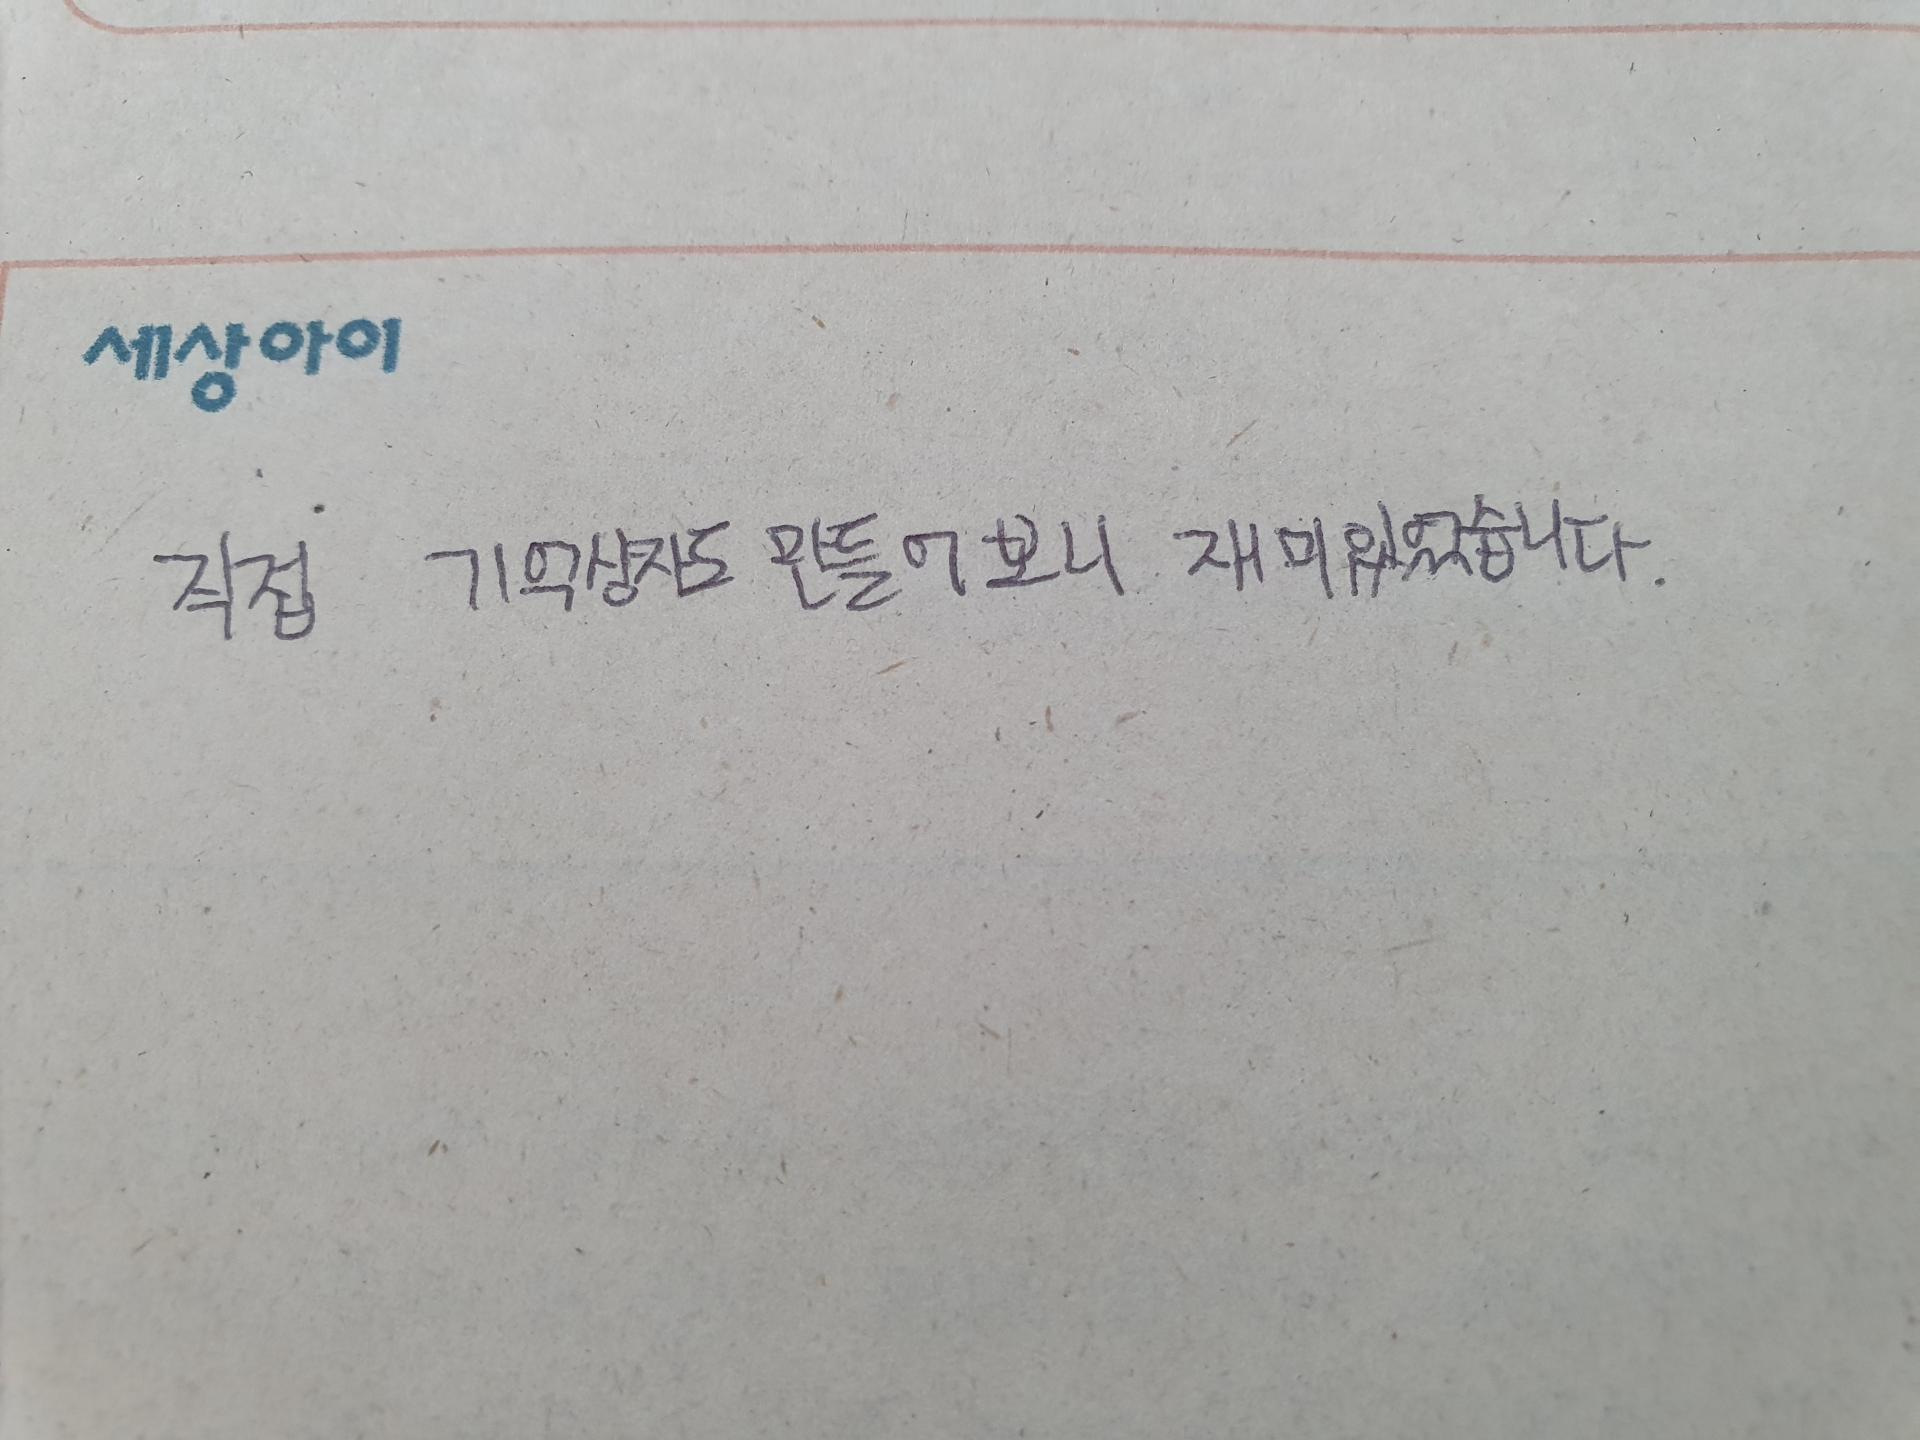 세상아이
직접 기억상자도 만들어보니 재미있었습니다.